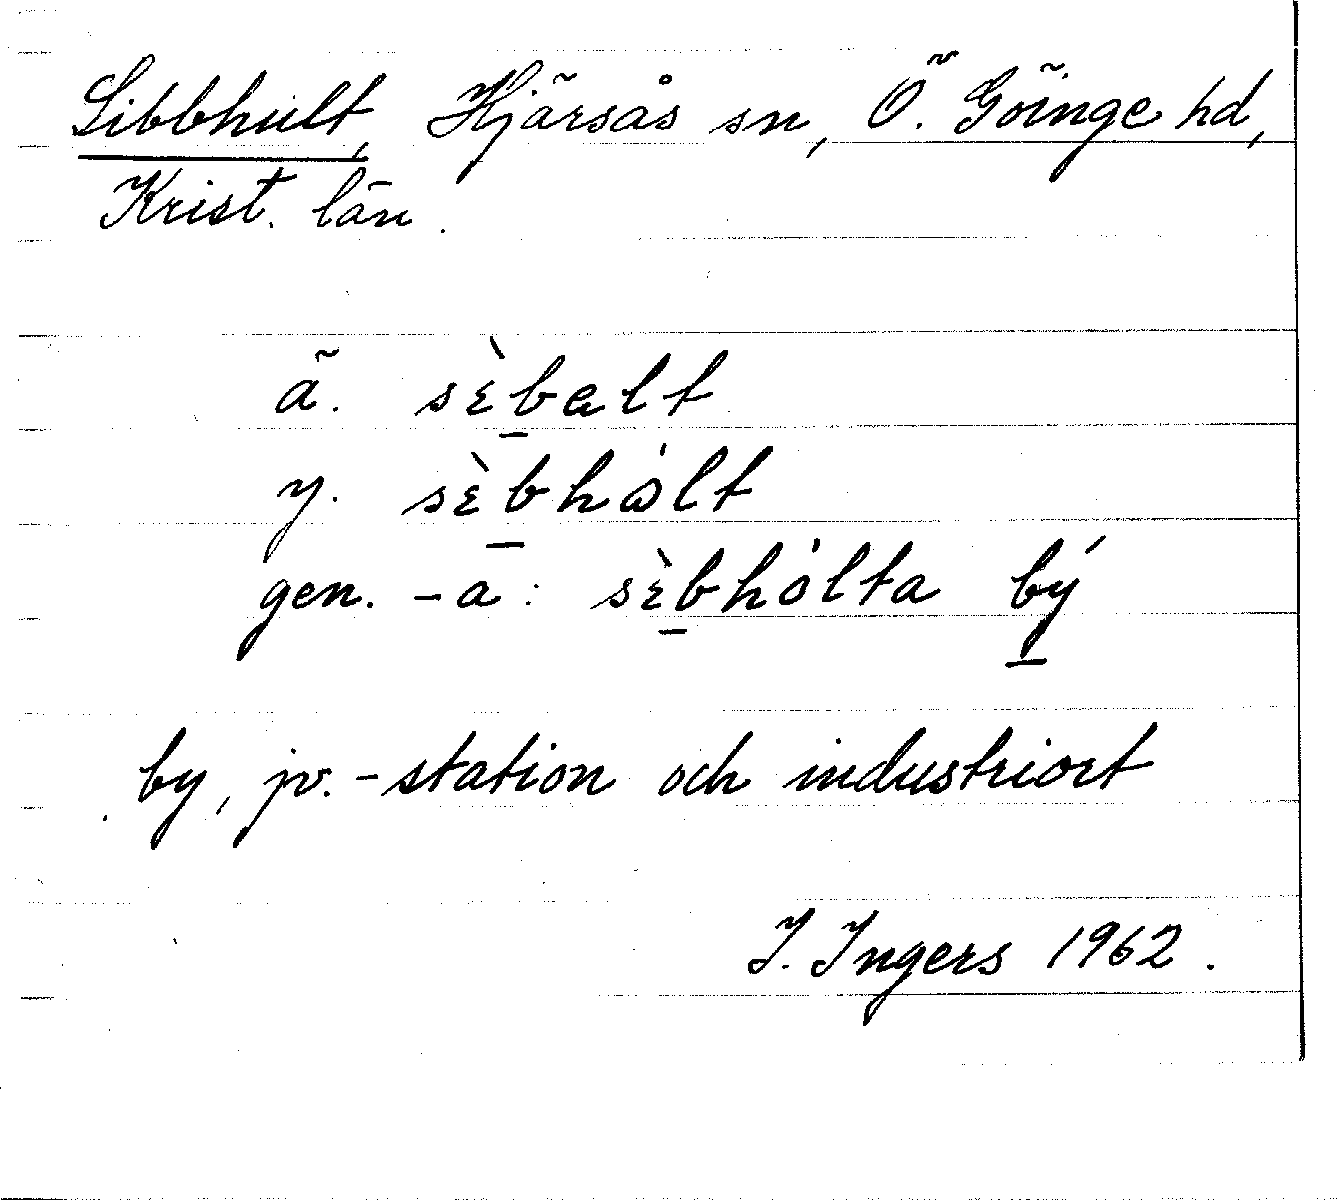 Sibbhult, Hjärsås sn, Ö. Göinge hd,
Krist. län.
ä. sὲ̀b̲alt
y. sὲ̀b̲hålt
gen. -a: sὲ̀b̲hålta bý̲
by, jv.-station och industriort
I. Ingers 1962.